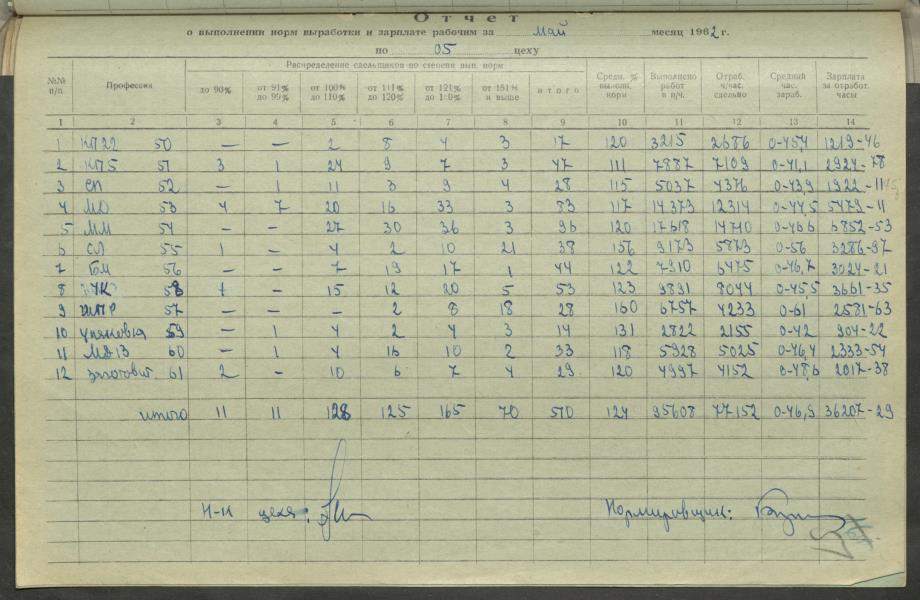 Отчет
о выполнении норм выработки и зарплате рабочим за май месяц 1962 г.
по 05 цеху
№№ п/п. Профессия Распределение сдельщиков по степени вып. норм Средн. % выполн. норм Выполнено работ в н/ч. Отраб. ч/час. сдельно Средний час. зараб. Зарплата за отработ. часы
до 90% от 91% до 99% от 100% до 110% от 111% до 120% от 121% до 150% от 151% и выше итого
1 2 3 4 5 6 7 8 9 10 11 12 13 14
1 КП22 50 — — 2 8 4 3 17 120 3215 2686 0-45,4 1219-46
2 КП5 51 3 1 24 9 7 3 47 111 7887 7109 0-41,1 2924-78
3 СП 52 — 1 11 3 9 4 28 115 5037 4376 0-43,9 1922-11
4 МО 53 4 7 20 16 33 3 83 117 14373 12314 0-44,5 5479-11
5 ММ 54 — — 27 30 36 3 96 120 17618 14710 0-46,6 6852-53
6 СЛ 55 1 — 4 2 10 21 38 156 9173 5873 0-56 3286-97
7 БМ 56 — — 7 19 17 1 44 122 7910 6475 0-46,7 3024-21
8 58 1 — 15 12 20 5 53 123 9891 8044 0-45,5 3661-35
9 57 — — — 2 8 18 28 160 6757 4233 0-61 2581-63
10 59 — 1 4 2 4 3 14 131 2822 2155 0-42 904-22
11 60 — 1 4 16 10 2 33 118 5928 5025 0-46,4 2333-54
12 заготовит 61 2 — 10 6 7 4 29 120 4997 4152 0-48,6 2017-38
итого 11 11 128 125 165 70 510 124 95608 77152 0-46,9 36207-29
Н-к цеха: Нормировщик: